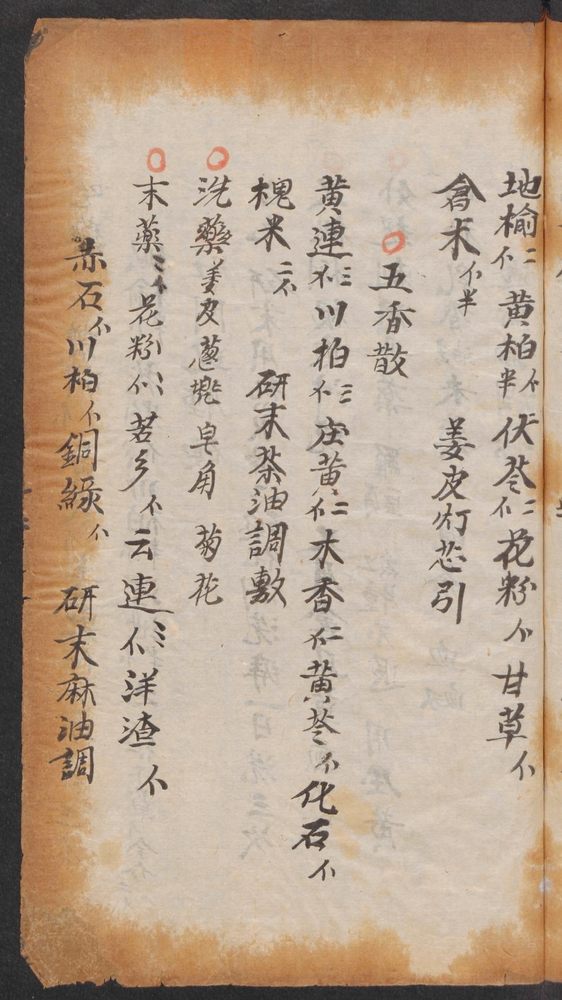 地榆二 黄柏半 伏苓二 花粉 甘草
木半 姜皮灯芯引
五香散
黄連三 川柏三 庄黄二 木香二 黄苓 化石
槐米二 研末茶油調敷
洗藥 姜皮葱 皂角 菊花
末藥三 花粉 茗乡 云連三 洋渣
赤石 川柏 銅綠 研末麻油調